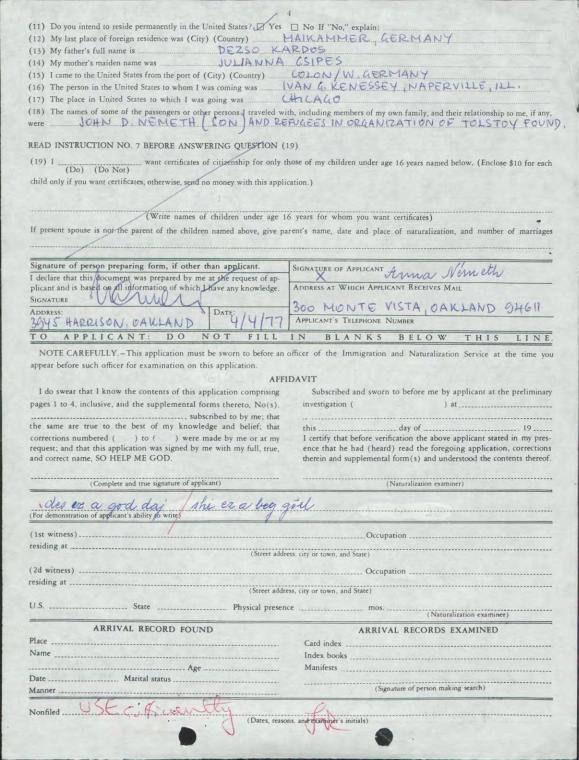 4
(11) Do you intend to reside permanently in the United States? ☑ Yes ☐ No If "No," explain:
(12) My last place of foreign residence was (City) (Country) MAIKAMMER, GERMANY
(13) My father's full name is DEZSO KARDOS
(14) My mother's maiden name was JULIANNA CSIPES
(15) I came to the United States from the port of (City) (Country) COLON/W. GERMANY
(16) The person in the United States to whom I was coming was IVAN G. KENESSEY, NAPERVILLE, ILL.
(17) The place in the United States to which I was going was CHICAGO
(18) The names of some of the passengers or other persons I traveled with, including members of my own family, and their relationship to me, if any,
were JOHN D. NEMETH (SON) AND REFUGEES IN ORGANIZATION OF TOLSTOY FOUND.
READ INSTRUCTION NO. 7 BEFORE ANSWERING QUESTION (19)
(19) I want certificates of citizenship for only those of my children under age 16 years named below. (Enclose $10 for each
(Do) (Do Not)
child only if you want certificates, otherwise, send no money with this application.)
(Write names of children under age 16 years for whom you want certificates)
If present spouse is not the parent of the children named above, give parent's name, date and place of naturalization, and number of marriages
Signature of person preparing form, if other than applicant.
I declare that this document was prepared by me at the request of applicant and is based on all information of which I have any knowledge.
SIGNATURE
ADDRESS: 3945 HARRISON, OAKLAND
DATE: 4/4/77
SIGNATURE OF APPLICANT
X Anna Németh
ADDRESS AT WHICH APPLICANT RECEIVES MAIL
300 MONTE VISTA, OAKLAND 94611
APPLICANT'S TELEPHONE NUMBER
TO APPLICANT: DO NOT FILL IN BLANKS BELOW THIS LINE.
NOTE CAREFULLY.—This application must be sworn to before an officer of the Immigration and Naturalization Service at the time you
appear before such officer for examination on this application.
AFFIDAVIT
I do swear that I know the contents of this application comprising
pages 1 to 4, inclusive, and the supplemental forms thereto, No(s).
subscribed to by me; that
the same are true to the best of my knowledge and belief; that
corrections numbered ( ) to ( ) were made by me or at my
request; and that this application was signed by me with my full, true,
and correct name, SO HELP ME GOD.
(Complete and true signature of applicant)
Subscribed and sworn to before me by applicant at the preliminary
investigation ( ) at
this day of 19
I certify that before verification the above applicant stated in my presence that he had (heard) read the foregoing application, corrections
therein and supplemental form(s) and understood the contents thereof.
(Naturalization examiner)
des ez a god daj / shi ez a beg görl
(For demonstration of applicant's ability to write)
(1st witness) Occupation
residing at
(Street address, city or town, and State)
(2d witness) Occupation
residing at
(Street address, city or town, and State)
U.S. State Physical presence mos.
(Naturalization examiner)
ARRIVAL RECORD FOUND
Place
Name
Age
Date Marital status
Manner
ARRIVAL RECORDS EXAMINED
Card index
Index books
Manifests
(Signature of person making search)
Nonfiled
(Dates, reasons, and examiner's initials)